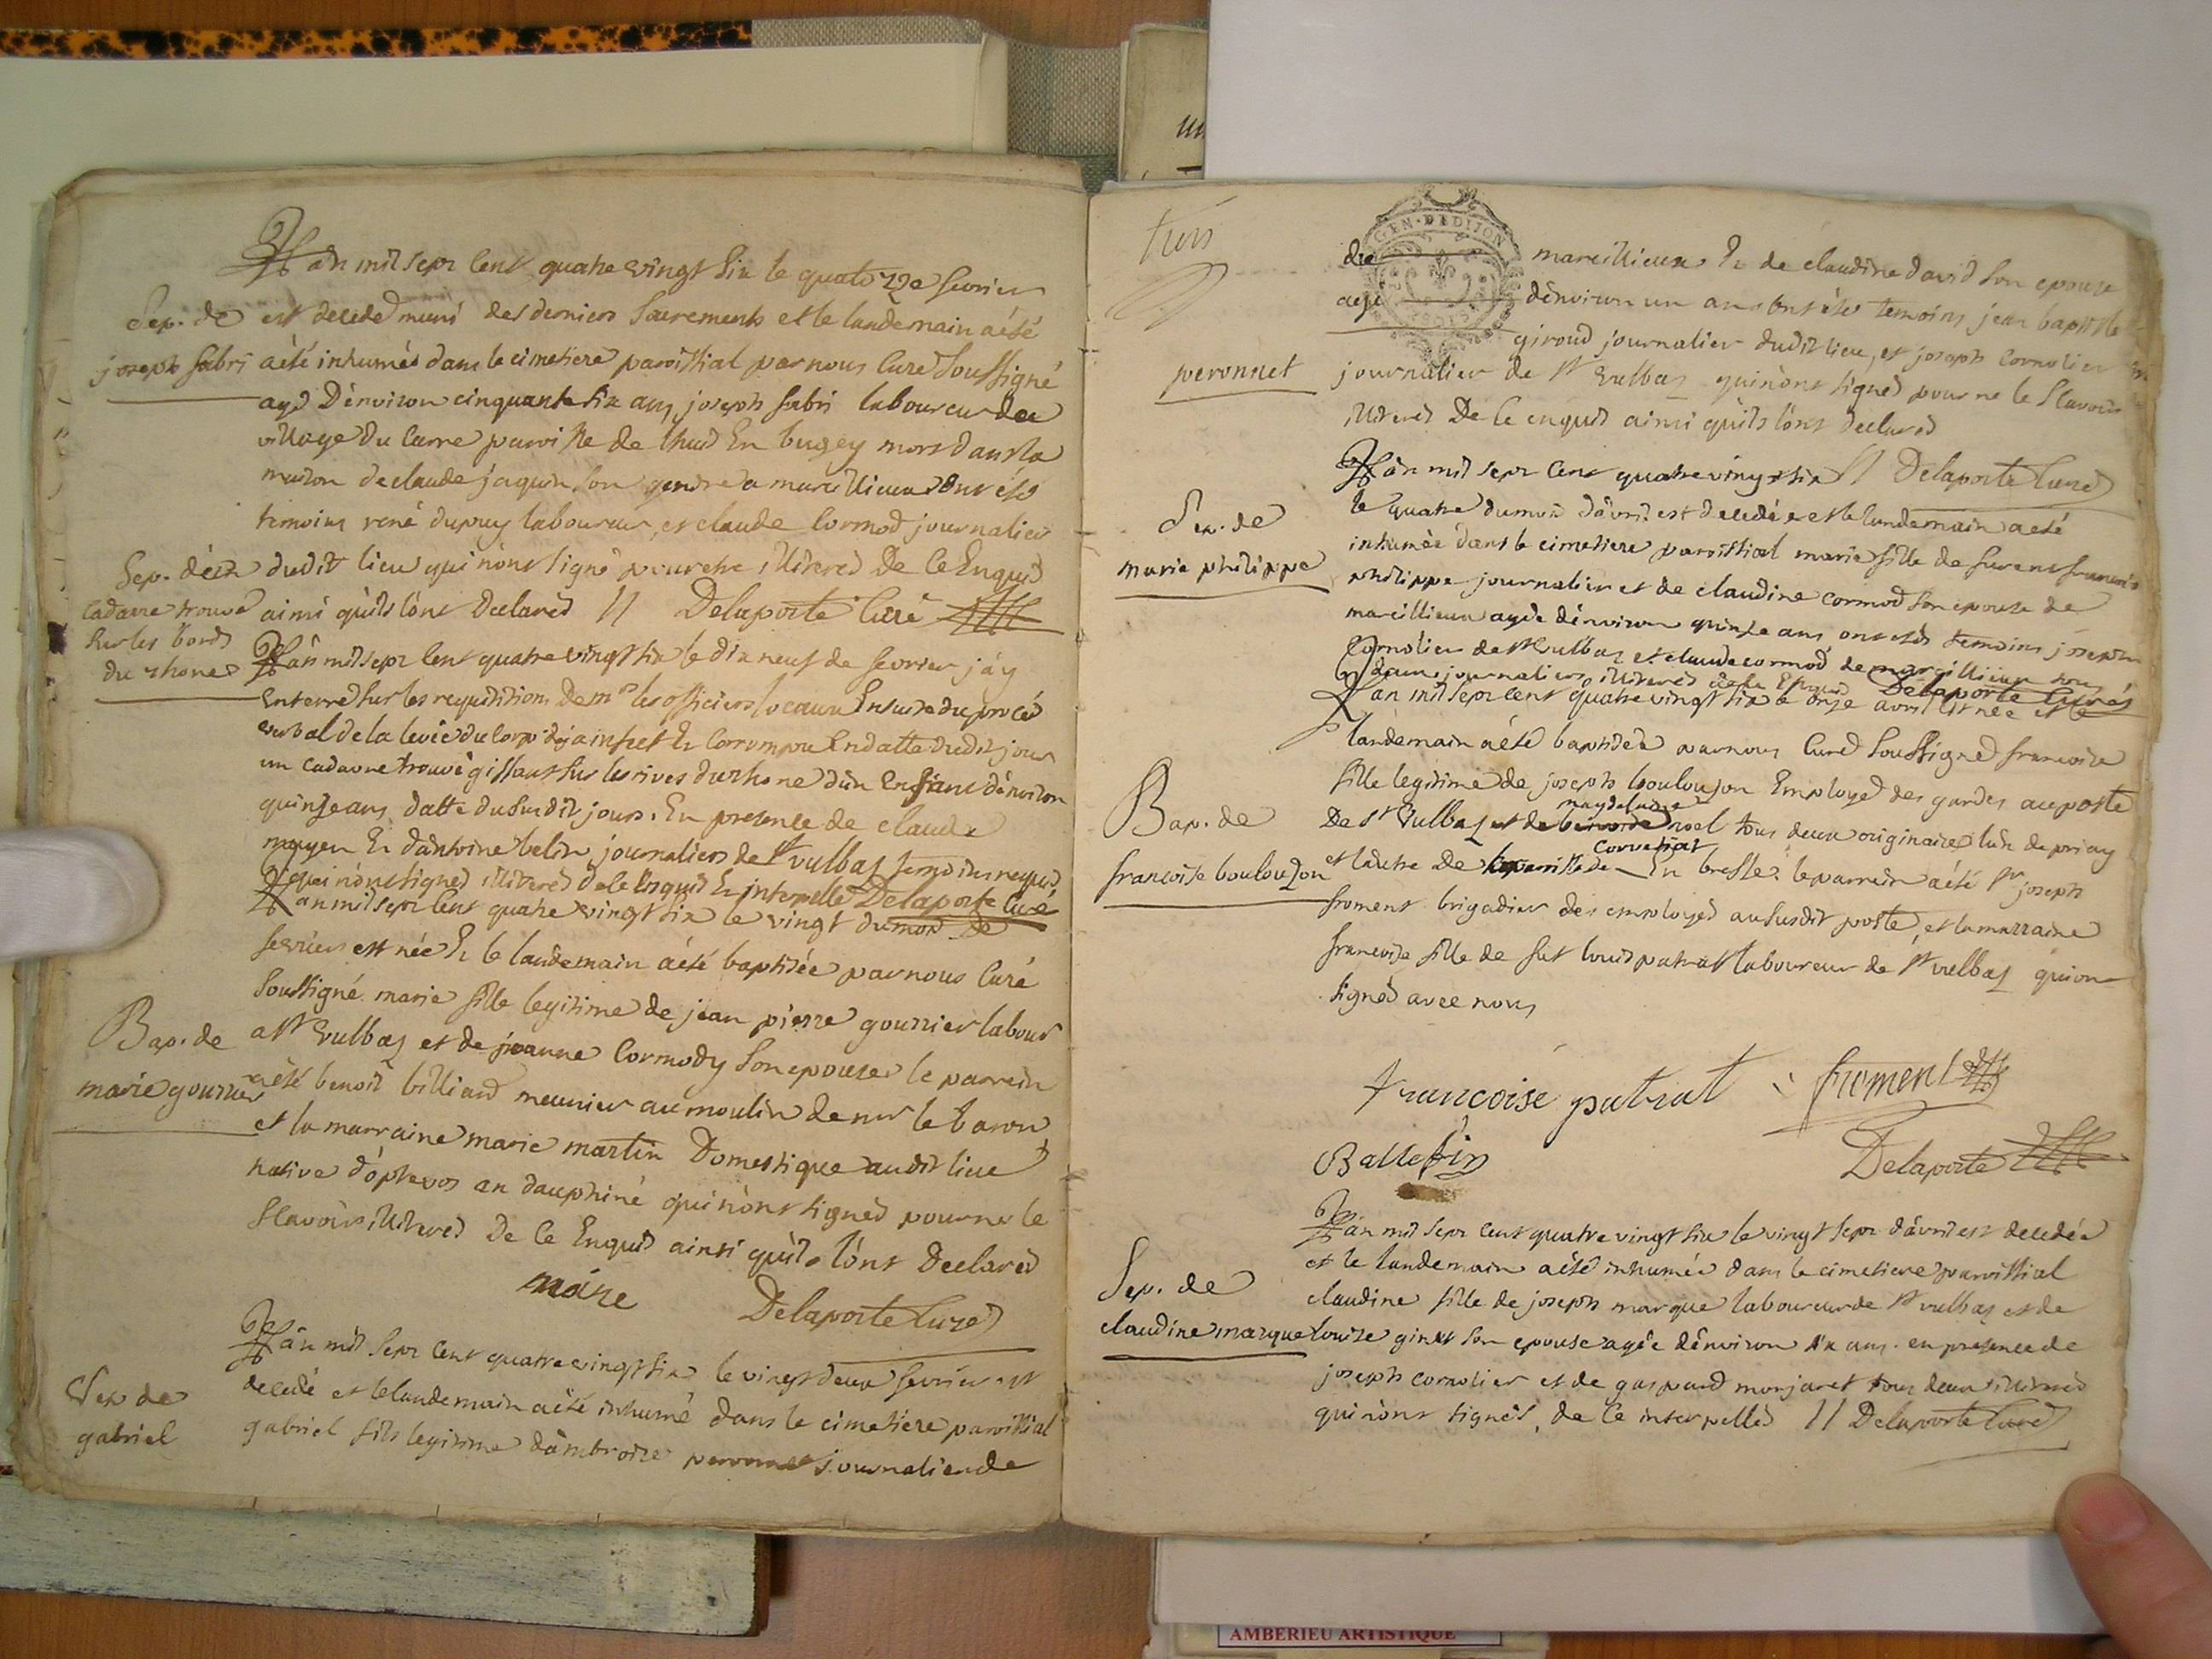 L'an mil sept cent quatre vingt six le quatorze fevrier
Sep. de
joseph fabri
est decedé muni des derniers Sacrements et le landemain a été
a été inhumé dans le cimetiere paroissial par nous Curé Soussigné
agé D'environ cinquante six ans, joseph fabri laboureur du
village du Carre paroisse de lhuis En bugey mort dans la
maison de claude jaquin son gendre a marcillieux ont été
temoins rené dupuy laboureur, et claude Cormod journalier
dudit lieu qui n'ont signé pour etre illiteres De Ce Enquis
ainsi qu'ils l'ont Declaré // Delaporte Curé
Sep. d'un
Cadavre trouvé
Sur les bords
du rhone
L'an mil sept cent quatre vingt six le dix neuf de fevrier j'ay
Enterré sur les requisitions De mrs les officiers locaux Ensuite du procés
verbal de la levée du Corps deja infect Et Corrompu En datte dudit jour
un Cadavre trouvé gissant sur les rives du rhone d'un Enfant d'environ
quinze ans, datte du Susdit jour. En presence de claude
moyen Et d'antoine belin journaliers de st vulbas temoins requis
qui n'ont signé illiteres de Ce Enquis Et interpellé Delaporte Curé
L'an mil sept cent quatre vingt six le vingt du mois de
fevrier est née Et le landemain a été baptisée par nous Curé
Soussigné marie fille legitime de jean pierre gourrier labour
Bap. de
marie gourrier
a st vulbas et de jeanne Cormody Son epouse le parrein
a été benoit billiard meunier au moulin de mr le baron
et la marraine marie martin Domestique audit lieu
native d'optevos en dauphiné qui n'ont signé pour ne le
Scavoir illiteres De Ce Enquis ainsi qu'ils l'ont Declaré
Delaporte Curé
L'an mil Sept cent quatre vingt six le vingt deux fevrier est
Sep de
gabriel
decedé et le landemain a été inhumé dans le cimetiere paroissial
gabriel fils legitime d'ambroise peronnet journalier de
GEN · DE DIJON
peronnet
de marcillieux Et de claudine david Son epouse
agé d'environ un an ont été temoins jean baptiste
giroud journalier dudit lieu, et joseph Cornolier
journalier de st vulbas qui n'ont signé pour ne le Scavoir
illiteres De Ce enquis ainsi qu'ils l'ont declaré
L'an mil sept cent quatre vingt six // Delaporte Curé
Sep. de
marie philippe
le quatre du mois d'avril est decedée et le landemain a été
inhumée dans le cimetiere paroissial marie fille de françois
philippe journalier et de claudine cormod son epouse de
marcillieux agée d'environ quinze ans ont été temoins joseph
Cornolier de st vulbas et claude cormod de marcillieux tous
deux journaliers illiteres de Ce Enquis Delaporte Curé
L'an mil sept cent quatre vingt six le onze avril est née et le
landemain a été baptisée par nous Curé Soussigné francoise
Bap. de
francoise boulouzon
fille legitime de joseph boulouzon Employé des gardes au poste
De st Vulbas et de magdelaine noel tous deux originaires l'un de priay
et l'autre de Corveissiat En bresse. le parrein a été sr joseph
froment brigadier des employés au susdit poste, et la marraine
francoise fille de feu louis patrat laboureur de st vulbas qui ont
signés avec nous
francoise patrat froment
Ballefin
Delaporte
L'an mil sept cent quatre vingt six le vingt sept d'avril est decedée
et le landemain a été inhumée dans le cimetiere paroissial
Sep. de
claudine marque
claudine fille de joseph marque laboureur de st vulbas et de
louise ginet son epouse agée d'environ six ans. en presence de
joseph cornolier et de gaspard monjaret tous deux illiteres
qui n'ont signés, de Ce interpellés // Delaporte Curé
AMBERIEU ARTISTIQUE